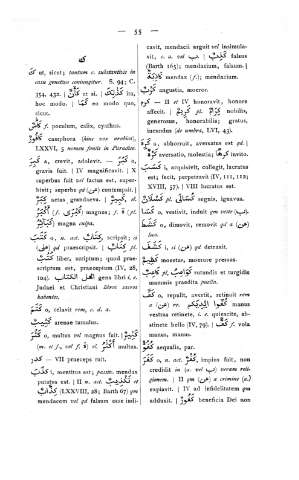 — 55 —
ك
كَ ut, sicut; tantum c. substantivo in
casu genetivo coniungitur. S. 94; C.
354, 432. | كَأَنَّ et si. | كَذٰلِكَ ita,
hoc modo. | كَمَا eo modo quo,
sicut.
كَأْسٌ f. poculum, calix, cyathus.
كَافُورٌ camphora (hinc nos occidui),
LXXVI, 5 nomen fontis in Paradiso.
كَبُرَ a, crevit, adolevit. — كَبُرَ o,
gravis fuit. | IV magnificavit. | X
superbus fuit vel factus est, super-
bivit; superbe pd (عن) contempsit. |
كِبَرٌ aetas grandaeva. | كَبِيرٌ, el.
أَكْبَرُ (f. كُبْرَى) magnus; f. ة (pl.
كَبَائِرُ) magna culpa.
كَتَبَ o, n. act. كِتَابٌ, scripsit; a
(على) pd praescripsit. | كِتَابٌ pl.
كُتُبٌ liber, scriptum; quod prae-
scriptum est, praeceptum (IV, 28,
104). أَهْلُ الْكِتَابِ gens libri i. e.
Judaei et Christiani libros sacros
habentes.
كَتَمَ o, celavit rem, c. d. a.
كَثِيبٌ arenae tumulus.
كَثُرَ o, multus vel magnus fuit. | كَثِيرٌ
(m. et f., vel f. ة) el. أَكْثَرُ multus.
كدر — VII praeceps ruit.
كَذَبَ i, mentitus est; pass. mendax
putatus est. | II n. act. تَكْذِيبٌ et
كِذَّابٌ (LXXVIII, 28; Barth 67) pm
mendacem vel pd falsum esse iudi-
cavit, mendacii arguit vel insimula-
vit, c. a. vel ب. | كَذِبٌ falsus
(Barth 165); mendacium, falsum. |
كَاذِبَةٌ mendax (f.); mendacium.
كَرْبٌ angustia, moeror.
كرم — II et IV honoravit, honore
affecit. | كَرِيمٌ pl. كِرَامٌ nobilis,
generosus, honorabilis; gratus,
iucundus (de umbra, LVI, 43).
كَرِهَ a, abhorruit, aversatus est pd. |
كُرْهٌ aversatio, molestia; كَرْهًا invito.
كَسَبَ i, acquisivit, collegit, lucratus
est; fecit, perpetravit (IV, 111, 112;
XVIII, 57). | VIII lucratus est.
كَسْلَانُ pl. كُسَالَى segnis, ignavus.
كَسَا o, vestivit, induit pm veste (ب).
كَشَطَ o, dimovit, removit qd a (عن)
loco.
كَشَفَ i, a (عن) pd detraxit.
كَظِيمٌ moestus, moerore pressus.
كَاعِبٌ pl. كَوَاعِبُ rotundis et turgidis
mammis praedita puella.
كَفَّ o, repulit, avertit, retinuit rem
a (عن) re. كُفُّوا أَيْدِيَكُمْ manus
vestras retinete, i. e. quiescite, ab-
stinete bello (IV, 79). | كَفٌّ f. vola
manus, manus.
كُفُوٌ aequalis, par.
كَفَرَ o, n. act. كُفْرٌ, impius fuit, non
credidit in (a. vel ب) veram reli-
gionem. | II pm (عن) a crimine (a.)
expiavit. | IV ad infidelitatem pm
adduxit. | كَفُورٌ beneficia Dei non